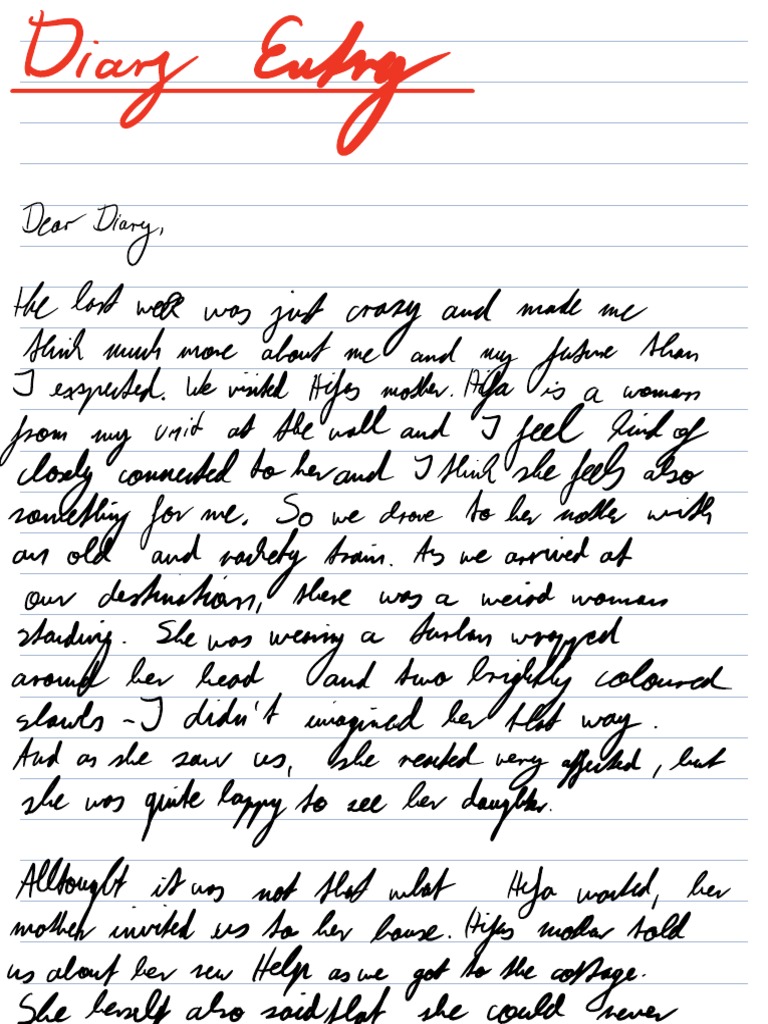 Diary Entry
Dear Diary,
the last week was just crazy and made me
think much more about me and my future than
I exspected. We visited Hifas mother. Hifa is a woman
from my unit at the wall and I feel kind of
closely connected to her and I think she feels also
something for me. So we drove to her mother with
an old and rackety train. As we arrived at
our destination, there was a weird woman
standing. She was wearing a turban wrapped
around her head and two brightly coloured
shawls - I didn't imagined her that way.
And as she saw us, she reacted very affected, but
she was quite happy to see her daughter.
Alltought it was not that what Hifa wanted, her
mother invited us to her house. Hifas mother told
us about her new Help as we got to the cottage.
She herself also said that she could never